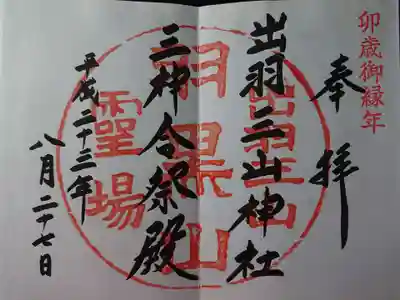 卯歳御縁年
奉拝
出羽三山神社
三神合祭殿
平成二十三年
八月二十七日
出羽三山
羽黒山
靈場